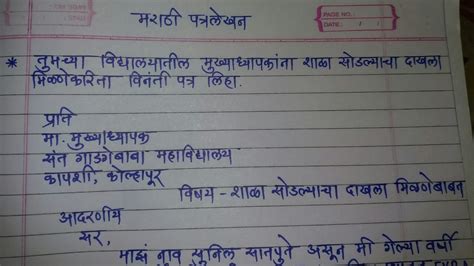 मराठी पत्रलेखन
PAGE NO.:
DATE: / /
* तुमच्या विद्यालयातील मुख्याध्यापकांना शाळा सोडल्याचा दाखला
मिळणेकरिता विनंती पत्र लिहा.
प्रति
मा. मुख्याध्यापक
संत गाडगेबाबा महाविद्यालय
कापशी, कोल्हापूर
विषय - शाळा सोडल्याचा दाखला मिळणेबाबत
आदरणीय
सर,
माझं नाव सुनिल सातपुते असून मी गेल्या वर्षी